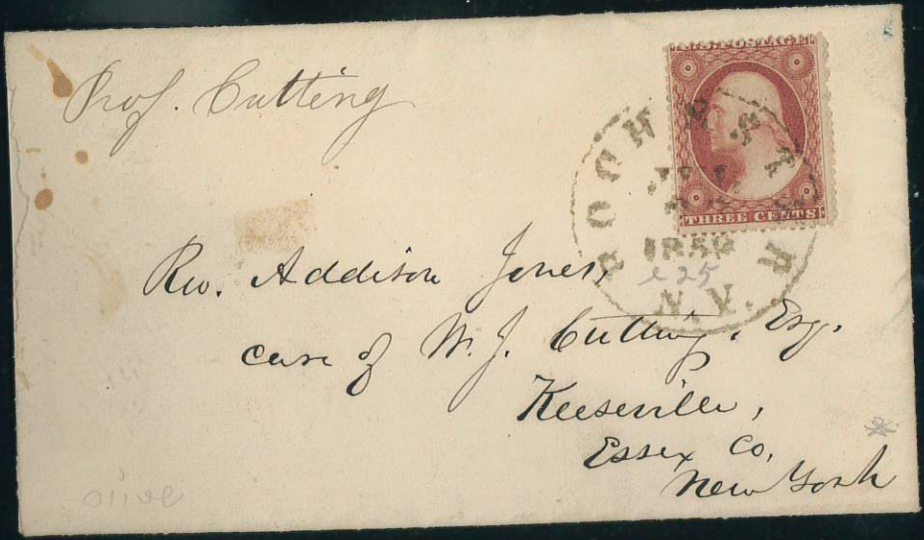 Prof. Cutting
U.S. POSTAGE
THREE CENTS
ROCHESTER
1859
N.Y.
e 25
Rev. Addison Jones,
care of W. J. Cutting, Esq.
Keeseville,
Essex Co,
New York
olive